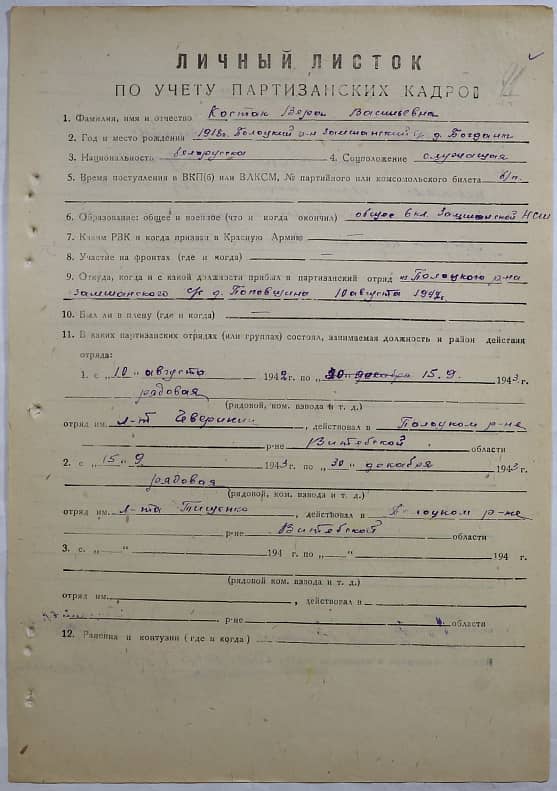 ЛИЧНЫЙ ЛИСТОК
ПО УЧЕТУ ПАРТИЗАНСКИХ КАДРОВ
1. Фамилия, имя и отчество Костюк Вера Васильевна
2. Год и место рождения 1918г. Полоцкий р-н Замшанский с/с д.
3. Национальность белорусска 4. Соцположение служащая
5. Время поступления в ВКП(б) или ВЛКСМ, № партийного или комсомольского билета б/п.
6. Образование: общее и военное (что и когда окончил) общее 6 кл. НСШ
7. Каким РВК и когда призван в Красную Армию —
8. Участие на фронтах (где и когда) —
9. Откуда, когда и с какой должности прибыл в партизанский отряд из Полоцкого р-на
Замшанского с/с д. Поповщина 10 августа 1942г.
10. Был ли в плену (где и когда) —
11. В каких партизанских отрядах (или группах) состоял, занимаемая должность и район действия
отряда:
1. с „10„ августа 1942г. по „ 15.9. 1943г.
рядовая
(рядовой, ком. взвода и т. д.)
отряд им. л-т , действовал в Полоцком р-не
р-не Витебской области
2. с „15„ 9 1943г. по „30„ декабря 1943г.
рядовая
(рядовой, ком. взвода и т. д.)
отряд им. л-та Тищенко , действовал в Полоцком р-не
р-не Витебской области
3. с „—„ 194 г. по „—„ 194 г.
(рядовой ком. взвода и т. д.)
отряд им. , действовал в
р-не области
12. Ранения и контузии (где и когда)